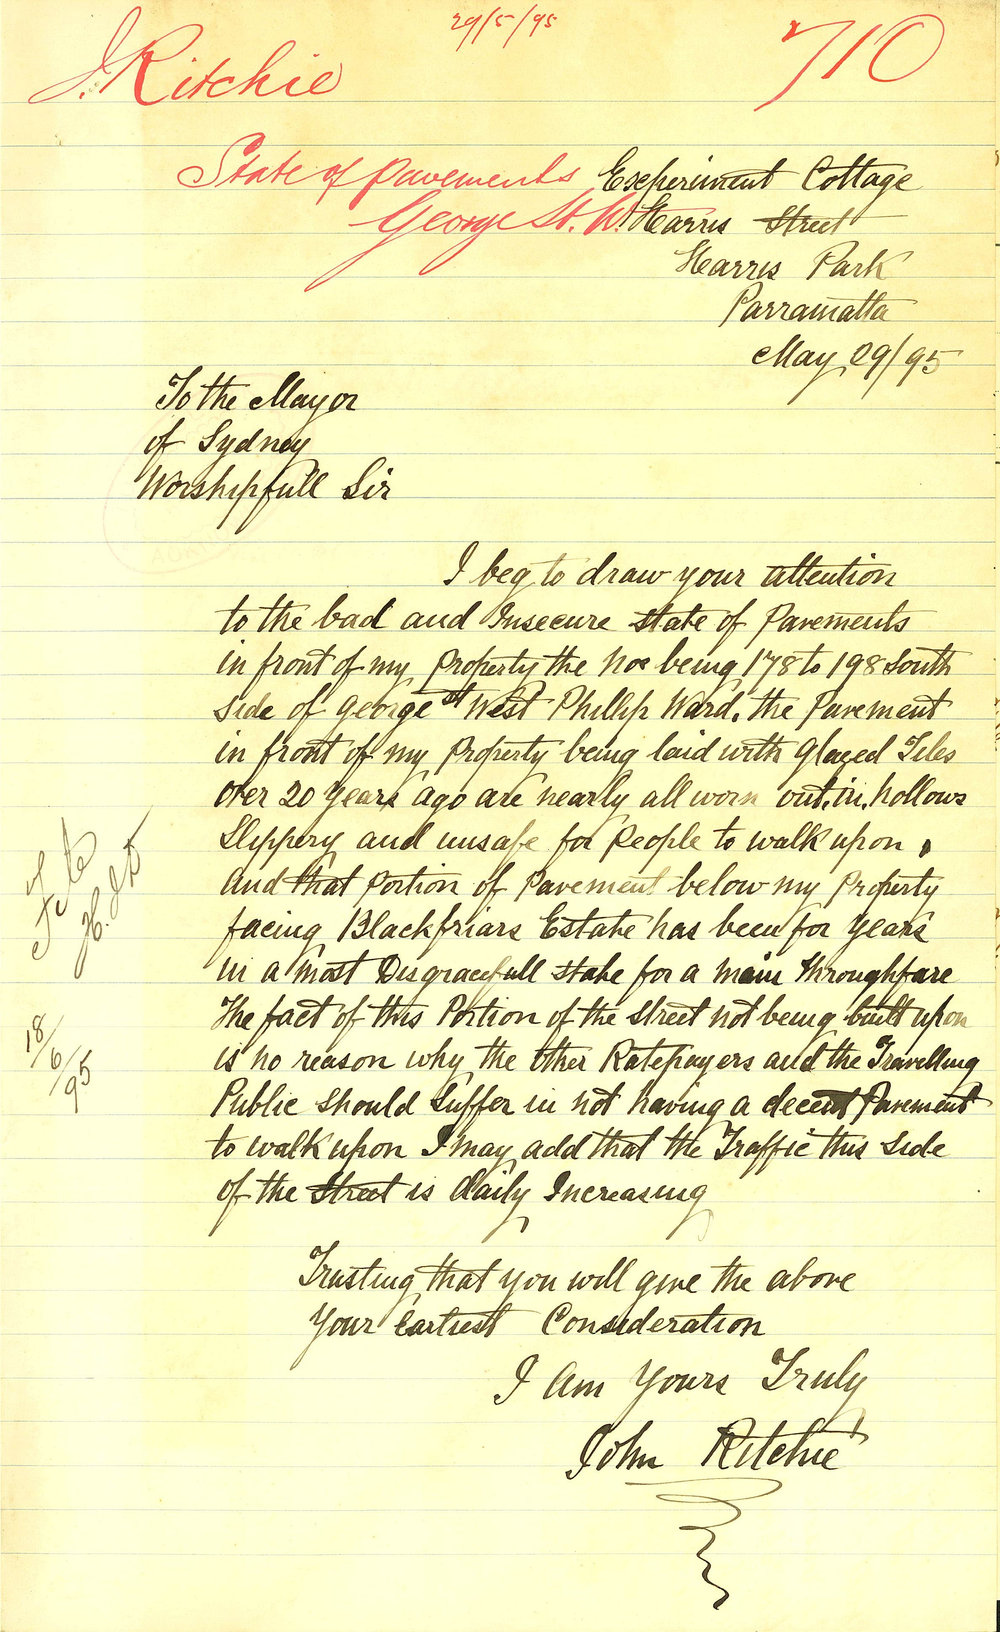 29/5/95
J. Ritchie
710
State of Pavements
George St. W.
Experiment Cottage
Harris Street
Harris Park
Parramatta
May 29/95
To the Mayor
of Sydney
Worshipfull Sir
I beg to draw your attention
to the bad and Insecure state of Pavements
in front of my Property the Nos being 178 to 198 South
side of George st West Phillip Ward. the Pavement
in front of my Property being laid with Glazed Tiles
over 20 years ago are nearly all worn out, in, hollows
Slippery and unsafe for People to walk upon,
and that Portion of Pavement below my Property
facing Blackfriars Estate has been for years
in a most Disgracefull state for a main throughfare
The fact of this Portion of the street not being built upon
is no reason why the other Ratepayers and the Travelling
Public should suffer in not having a decent Pavement
to walk upon I may add that the Traffic this side
of the Street is daily Increasing
Trusting that you will give the above
Your Earliest Consideration
I Am Yours Truly
John Ritchie
18/6/95